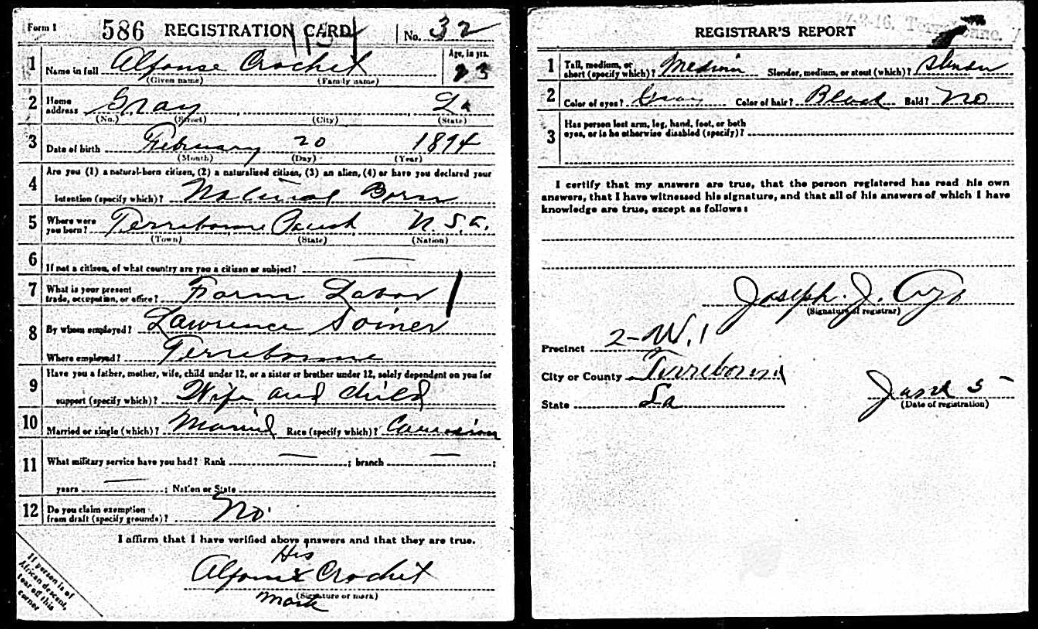 Form 1 586 REGISTRATION CARD No. 32
1 Name in full Alfonse Crochet Age, in yrs. 23
(Given name) (Family name)
2 Home address Gray La
(No.) (Street) (City) (State)
3 Date of birth February 20 1894
(Month) (Day) (Year)
4 Are you (1) a natural-born citizen, (2) a naturalized citizen, (3) an alien, (4) or have you declared your
intention (specify which)? Natural Born
5 Where were you born? Terrebonne Parish U.S.A.
(Town) (State) (Nation)
6 If not a citizen, of what country are you a citizen or subject?
7 What is your present trade, occupation, or office? Farm Labor
8 By whom employed? Lawrence
Where employed? Terrebonne
9 Have you a father, mother, wife, child under 12, or a sister or brother under 12, solely dependent on you for
support (specify which)? Wife and child
10 Married or single (which)? Married Race (specify which)? Caucasian
11 What military service have you had? Rank ; branch ;
years ; Nation or State
12 Do you claim exemption from draft (specify grounds)? No
I affirm that I have verified above answers and that they are true.
His
Alfonse x Crochet
(Signature or mark)
mark
If person is of
African descent,
tear off this
corner
REGISTRAR'S REPORT
1 Tall, medium, or short (specify which)? Medium Slender, medium, or stout (which)? Slender
2 Color of eyes? Gray Color of hair? Black Bald? No
3 Has person lost arm, leg, hand, foot, or both
eyes, or is he otherwise disabled (specify)?
I certify that my answers are true, that the person registered has read his own
answers, that I have witnessed his signature, and that all of his answers of which I have
knowledge are true, except as follows:
Joseph J.
(Signature of registrar)
Precinct 2-W.1
City or County Terrebonne
State La
June 5
(Date of registration)